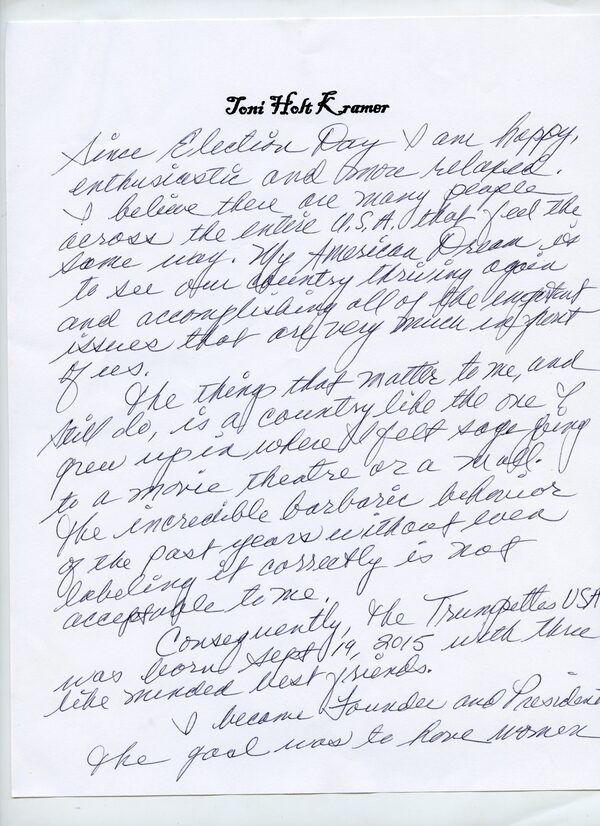 Toni Holt Kramer
Since Election Day I am happy,
enthusiastic and more relaxed.
I believe there are many people
across the entire U.S.A. that feel the
same way. My American Dream is
to see our country thriving again
and accomplishing all of the important
issues that are very much in front
of us.
The things that matter to me, and
still do, is a country like the one I
grew up in where I felt safe going
to a movie theatre or a mall.
The incredible barbaric behavior
of the past years without even
labeling it correctly is not
acceptable to me.
Consequently, the Trumpettes USA
was born Sept 19, 2015 with three
like minded best friends.
I became Founder and President
The goal was to have women